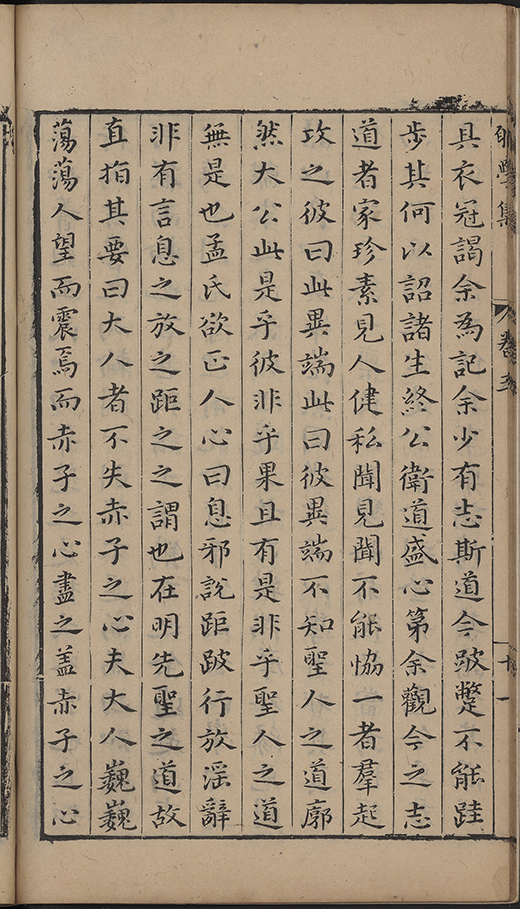 學集 卷五 十一
具衣冠謁余為記余少有志斯道今跛蹩不能跬
步其何以詔諸生終公衛道盛心第余觀今之志
道者家珍素見人健私聞見聞不能恊一者羣起
攻之彼曰此異端此曰彼異端不知聖人之道廓
然大公此是乎彼非乎果且有是非乎聖人之道
無是也孟氏欲正人心曰息邪說距跛行放淫辭
非有言息之放之距之之謂也在明先聖之道故
直指其要曰大人者不失赤子之心夫大人巍巍
蕩蕩人望而震焉而赤子之心盡之盖赤子之心